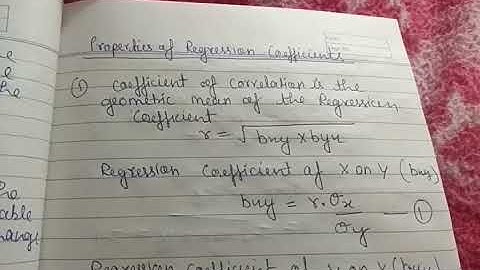 Properties of Regression Coefficients
① Coefficient of Correlation is the
geometric mean of the Regression
Coefficient
r = √bxy × byx
Regression Coefficient of X on Y (bxy)
bxy = r. σx / σy — ①
Regression coefficient of y on x (byx)
the
able